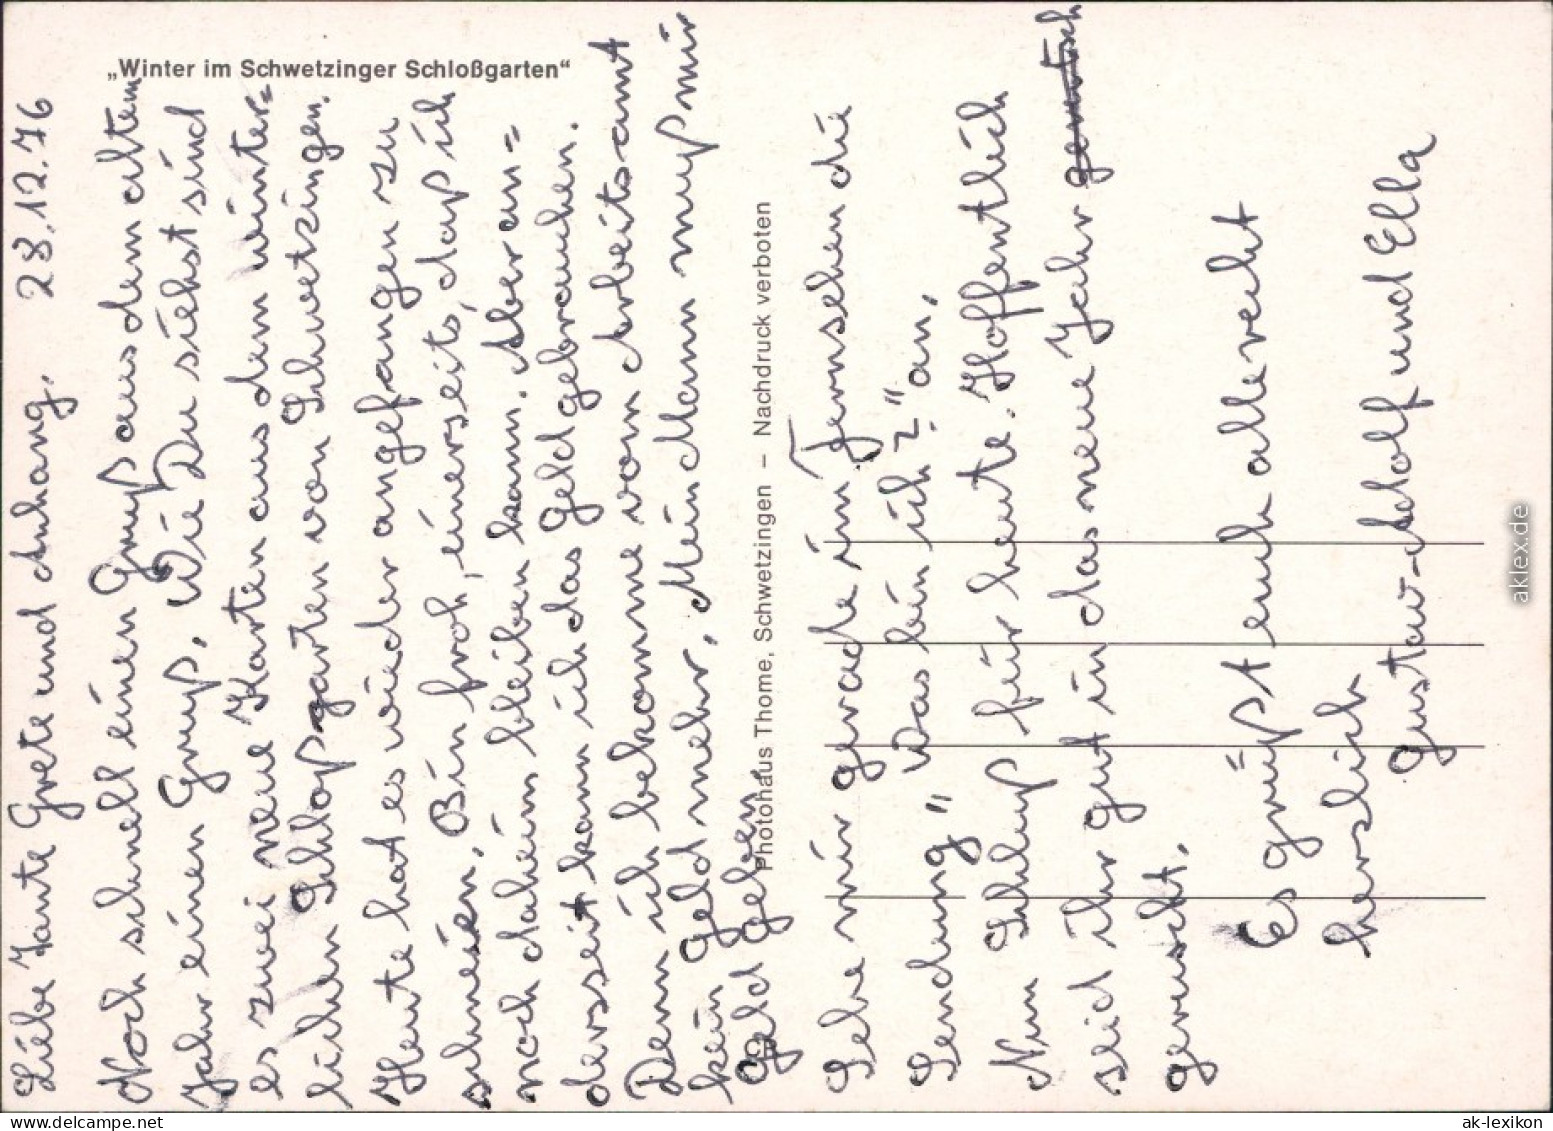 „Winter im Schwetzinger Schloßgarten“
Liebe Tante Grete und Anhang. 28.12.76
Noch schnell einen Gruß aus dem alten
Jahr einen Gruß. Wie Du siehst sind
es zwei neue Karten aus dem winter=
lichen Schloßgarten von Schwetzingen.
Heute hat es wieder angefangen zu
schneien. Bin froh, einerseits, daß ich
noch daheim bleiben kann. Aber an=
derseit kann ich das Geld gebrauchen.
Denn ich bekomme vom Arbeitsamt
kein Geld mehr. Mein Mann muß mir
Geld geben.
Photohaus Thome, Schwetzingen – Nachdruck verboten
Sehe mir gerade im Fernsehen die
Sendung "Was bin ich?" an.
Nun Schluß für heute. Hoffentlich
seid ihr gut in das neue Jahr gerutscht
gerutscht.
Es grüßt euch alle recht
herzlich
Gustav-Adolf und Ella
aklex.de
www.ak-lexikon.de
ak-lexikon.com